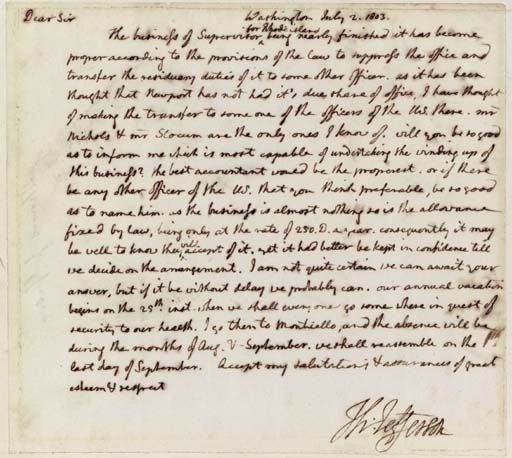 Dear Sir Washington July 2. 1803.
The business of Supervisor for Rhode island being nearly finished it has become
proper according to the provisions of the law to suppress the office and
transfer the residuary duties of it to some other officer. as it has been
thought that Newport has not had it's due share of office, I have thought
of making the transfer to some one of the officers of the US. there. mr
Nichols & mr Slocum are the only ones I know of. will you be so good
as to inform me which is most capable of undertaking the winding up of
this business? the best accountant would be the properest. or if there
be any other officer of the US. that you think preferable, be so good
as to name him. as the business is almost nothing so is the allowance
fixed by law, being only at the rate of 250. D. a year. consequently it may
be well to know they will accept of it. yet it had better be kept in confidence till
we decide on the arrangement. I am not quite certain we can await your
answer, but if it be without delay we probably can. our annual vacation
begins on the 25th inst. when we shall every one go some where in quest of
security to our health. I go then to Monticello, and the absence will be
during the months of Aug. & September. we shall reassemble on the
last day of September. Accept my salutations & assurances of great
esteem & respect
Th: Jefferson